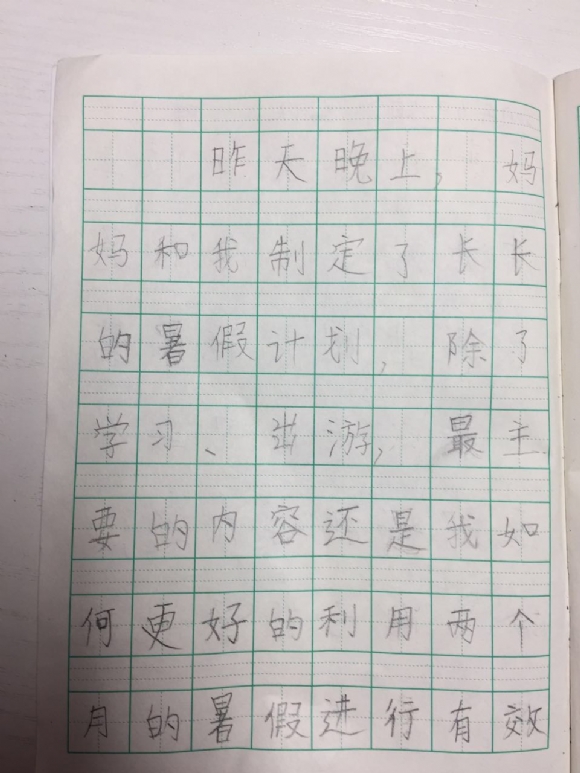 昨天晚上,妈
妈和我制定了长长
的暑假计划,除了
学习、出游,最主
要的内容还是我如
何更好的利用两个
月的暑假进行有效